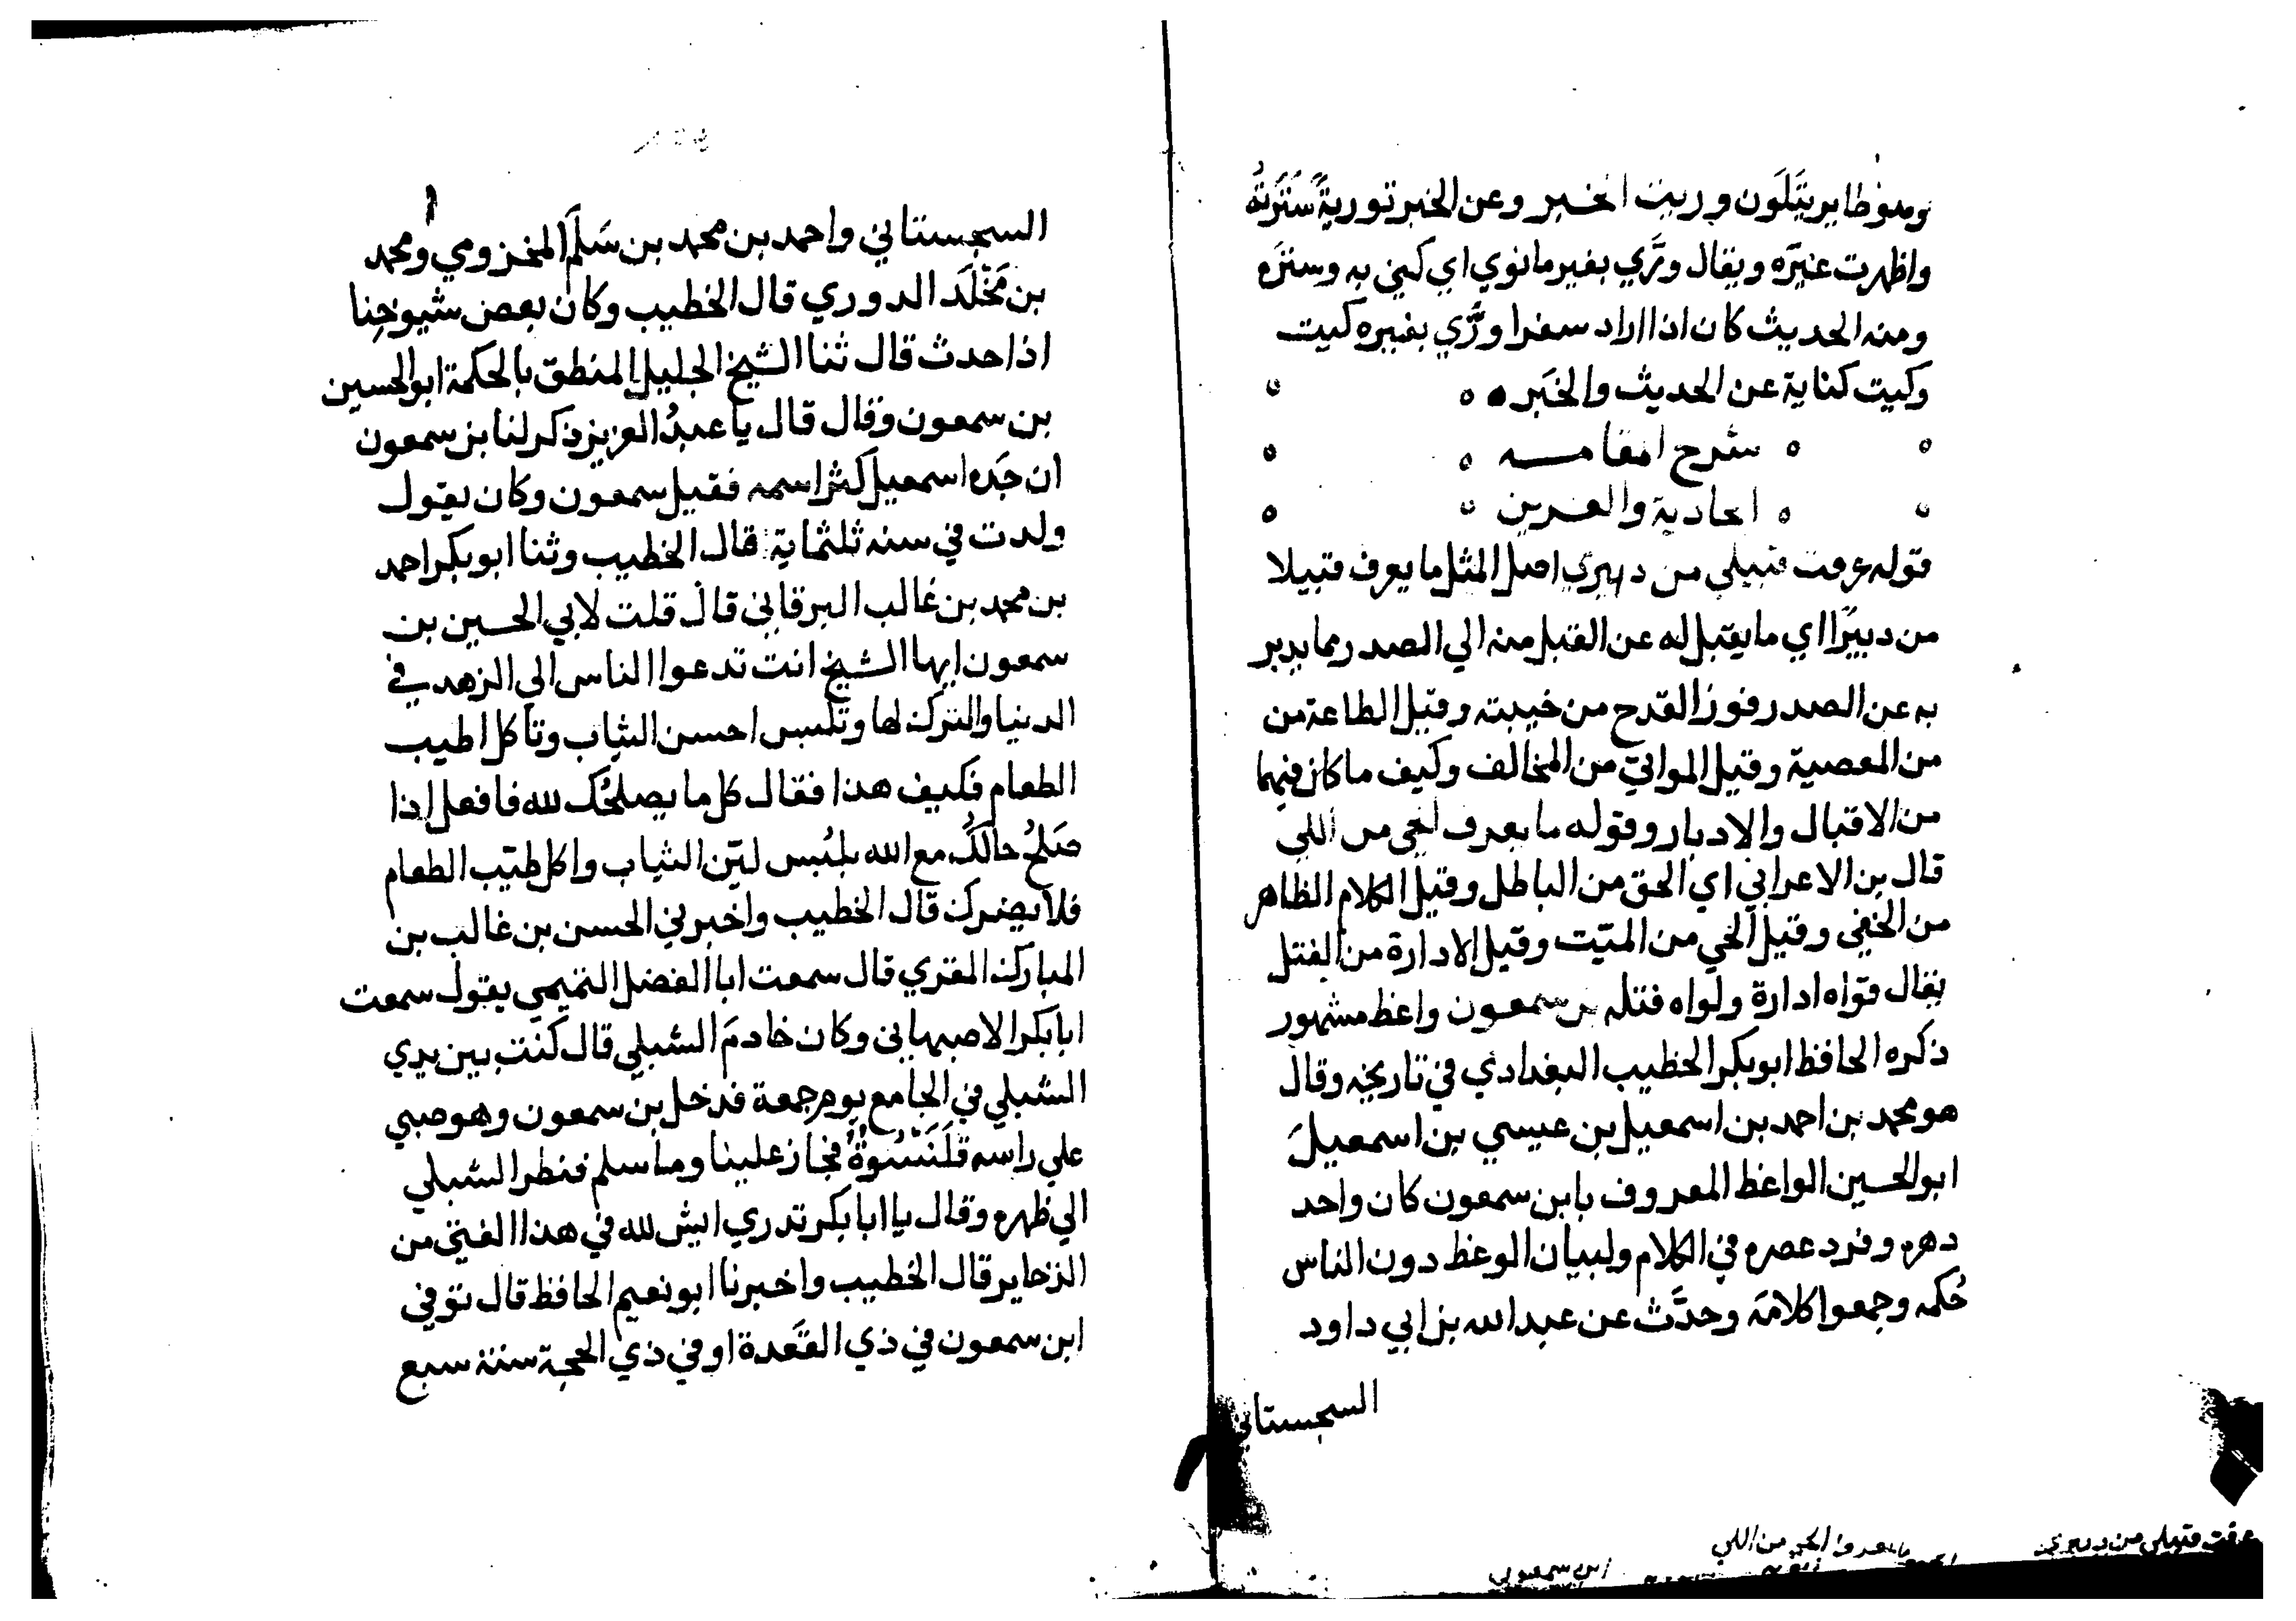 وريت الخبر وعن الخبر تورية سَتَرتُهُ
واظهرت غيرَه ويقال ورَّي بغير ما نوي اي كني به وستره
ومنه الحديث كان اذا اراد سفرا ورَّي بغيره كيت
وكيت كناية عن الحديث والخَبر
شرح المقامـــه
الحادية والعشرين
قوله عرفت قبيلي من دبيري اصل المثل ما يعرف قبيلا
من دبيرًا اي ما يقبل له عن القبل منه الي الصدر مما يدبر
به عن الصدر فوز القدح من خيبته وقيل الطاعة من
من المعصية وقيل المواتي من المخالف وكيف ما كان فيهما
من الاقبال والادبار وقوله ما يعرف الحي من اللي
قال بن الاعرابي اي الحق من الباطل وقيل الكلام الظاهر
من الخفي وقيل الحي من الميّت وقيل الادارة من الفتل
يقال حوّاه ادارة ولواه فتله بن سمعون واعظ مشهور
ذكره الحافظ ابو بكر الخطيب البغدادي في تاريخه وقال
هو محمد بن احمد بن اسمعيل بن عيسي بن اسمعيلَ
ابو الحسين الواعظ المعروف بابن سمعون كان واحد
دهره وفرد عصره في الكلام ولبيان الوعظ دون الناس
حُكمه وجمعوا كلامَه وحدَّث عن عبد الله بن ابي داود
السجستاني
السجستاني واحمد بن محمد بن سَلم المخزومي ومحمد
بن مَخْلَد الدوري قال الخطيب وكان بعض شيوخِنا
اذا حدث قال ثنا الشيخ الجليل المنطق بالحكمة ابو الحسين
بن سمعون وقال قال يا عبدُ العزيز ذكر لنا بن سمعون
ان جَده اسمعيل كثر اسمه فقيل سمعون وكان يقول
ولدت في سنه ثلثماية قال الخطيب وثنا ابو بكر احمد
بن محمد بن غالب البرقاني قال قلت لابي الحسين بن
سمعون ايها الشيخ انت تدعوا الناس الي الزهد في
الدنيا والترك لها وتلبس احسن الثياب وتاكل اطيب
الطعام فكيف هذا فقال كل ما يصلحُك لله فافعل اذا
صَلحُ حالكُ مع الله بلُبس ليّن الثياب واكل طيّب الطعام
فلا يضرك قال الخطيب واخبرني الحسن بن غالب بن
المبارك المقري قال سمعت ابا الفضل التميمي يقول سمعت
ابا بكر الاصبهاني وكان خادمَ الشبلي قال كنت بين يدي
الشبلي في الجامع يوم جمعة فدخل بن سمعون وهو صبي
علي راسه قَلَنسُوَةٌ فجاز علينا وما سلم فنظر الشبلي
الي ظهره وقال يا ابا بكر تدري ايش لله في هذا الفتي من
الذخاير قال الخطيب واخبرنا ابو نعيم الحافظ قال توفي
ابن سمعون في ذي القَعدة او في ذي الحجة سنة سبع
عرفت قبيلي من دبيري
الحي من اللي
ابن سمعون